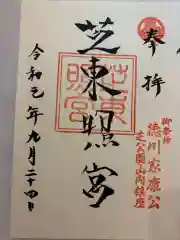 奉拝
御祭神
徳川家康公
芝公園山内鎮座
芝東照宮
令和元年九月二十四日